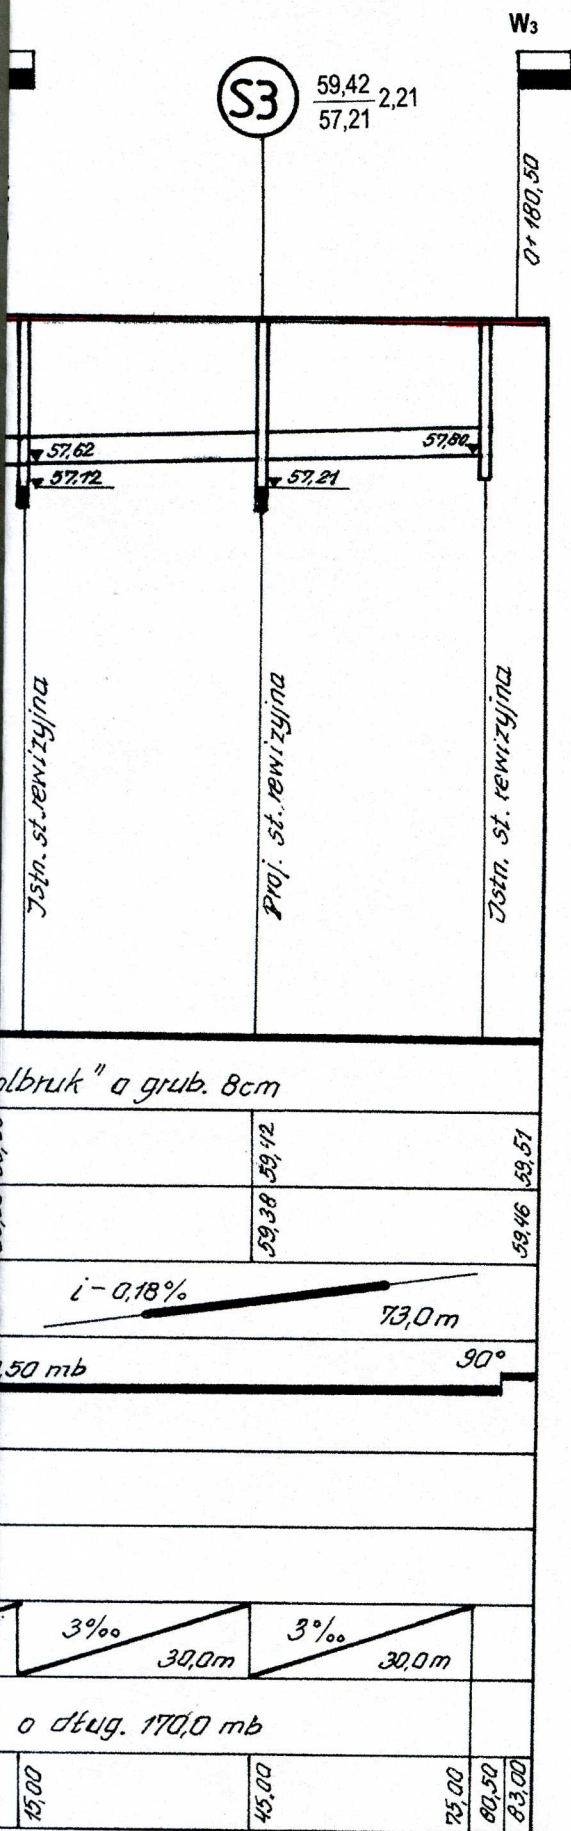 W3
S3
59,42
57,21
2,21
0+180,50
57,62
57,12
57,21
57,80
Istn. st. rewizyjna
Proj. st. rewizyjna
Istn. st. rewizyjna
lbruk" o grub. 8cm
59,42
59,51
59,38
59,46
i - 0,18%
73,0m
,50 mb
90°
3‰
30,0m
3‰
30,0m
o dług. 170,0 mb
15,00
45,00
75,00
80,50
83,00